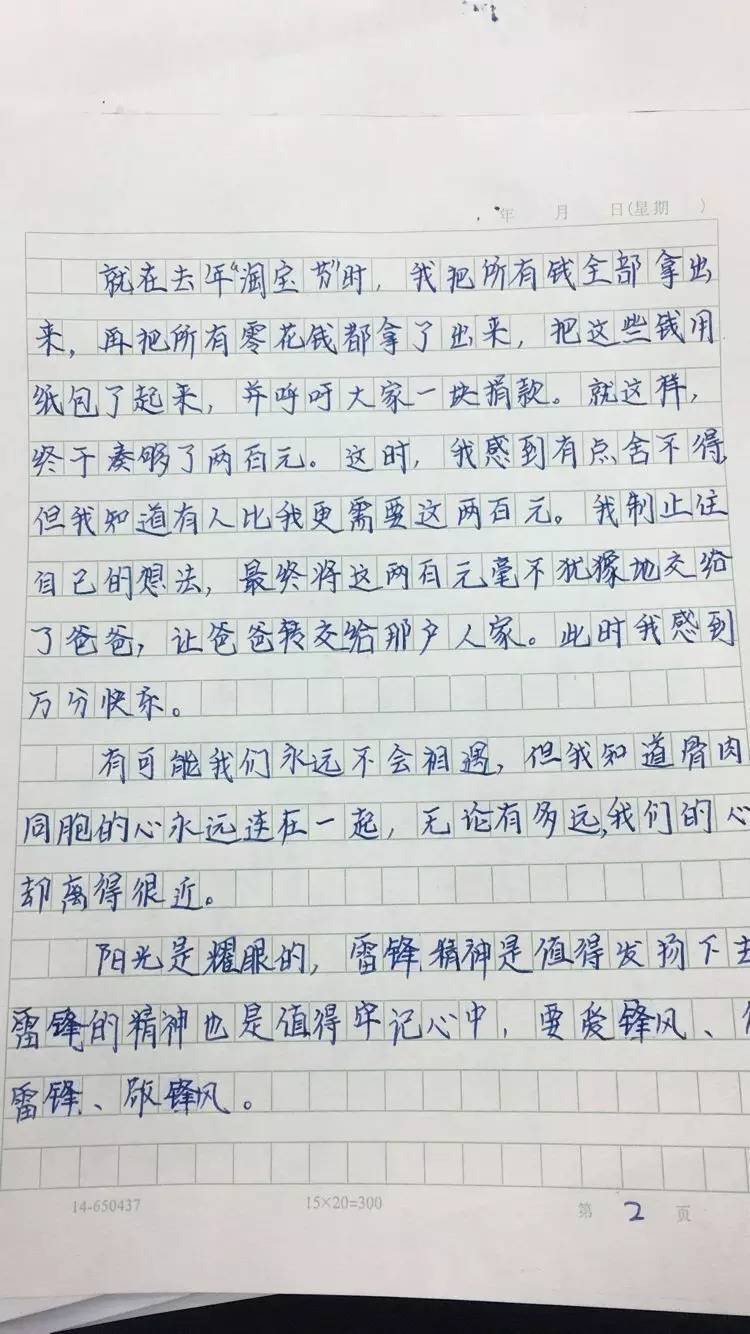 年 月 日(星期 )
就在去年“淘宝节”时，我把所有钱全部拿出
来，再把所有零花钱都拿了出来，把这些钱用
纸包了起来，并呼吁大家一块捐款。就这样，
终于凑够了两百元。这时，我感到有点舍不得，
但我知道有人比我更需要这两百元。我制止住
自己的想法，最终将这两百元毫不犹豫地交给
了爸爸，让爸爸转交给那户人家。此时我感到
万分快乐。
有可能我们永远不会相遇，但我知道骨肉
同胞的心永远连在一起，无论有多远，我们的心
却离得很近。
阳光是耀眼的，雷锋精神是值得发扬下去
雷锋的精神也是值得牢记心中，要爱锋风、
雷锋、敬锋风。
14-650437 15×20=300 第 2 页